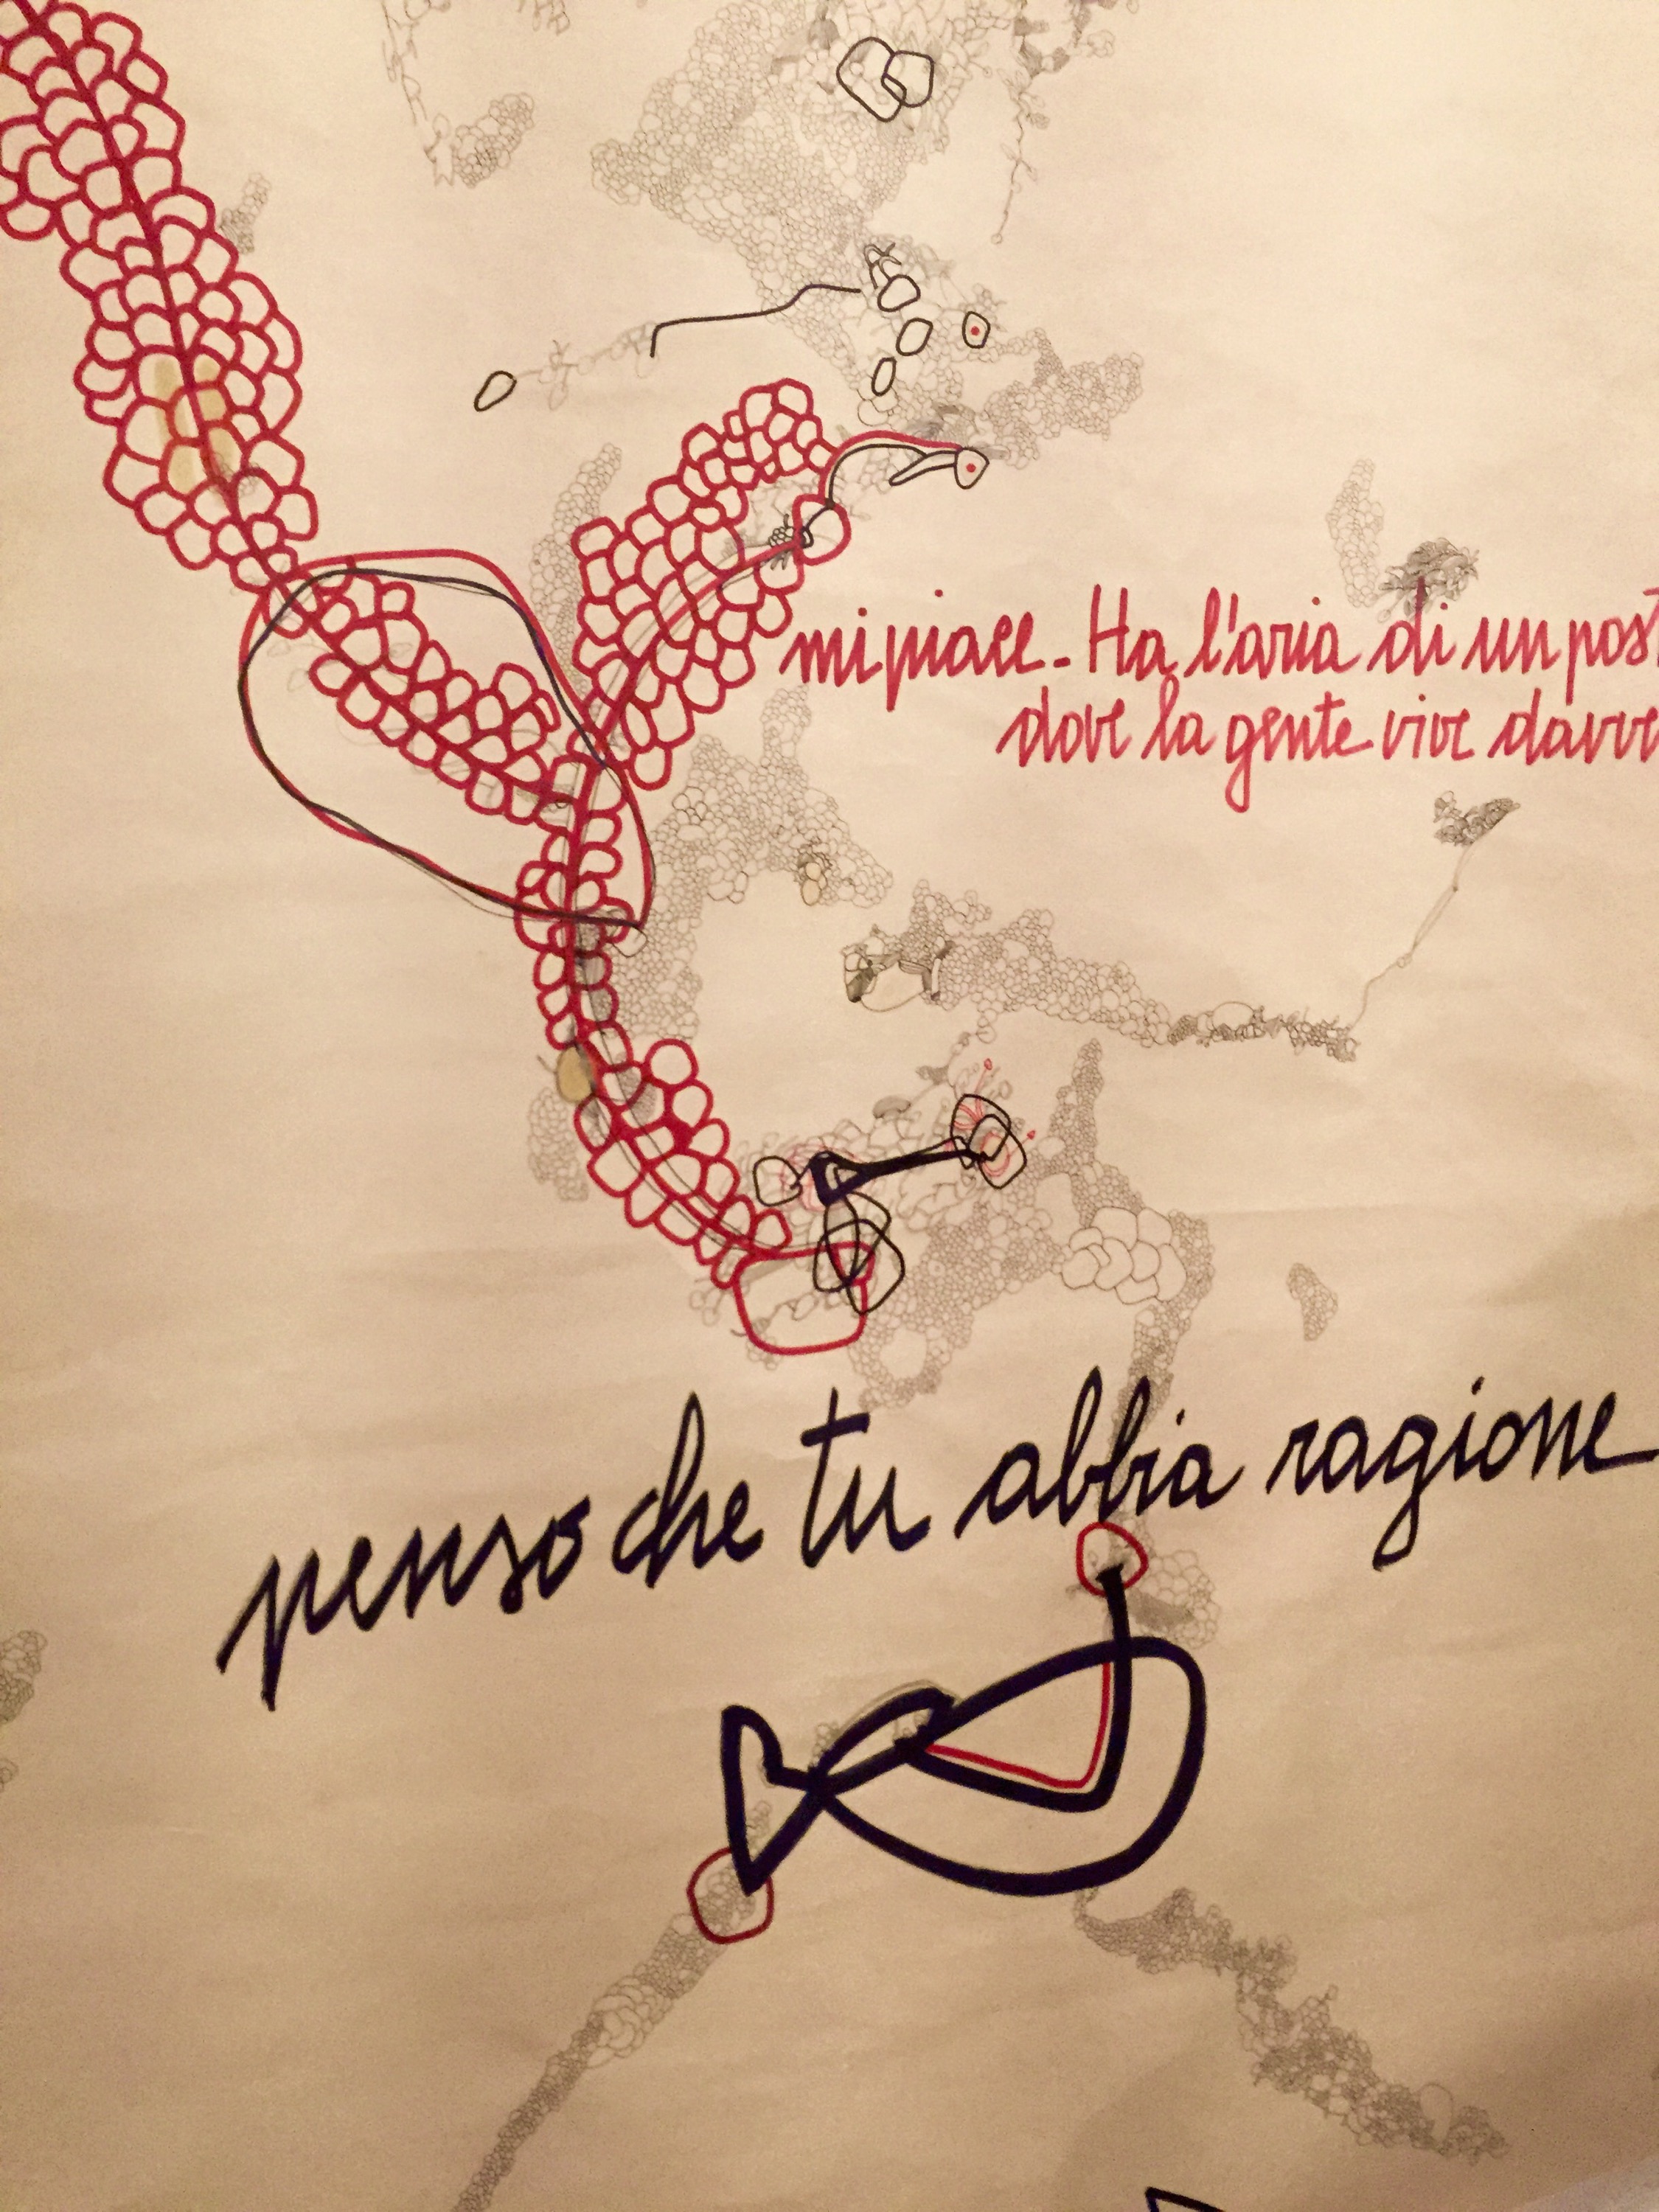 mi piace - Ha l'aria di un post
dove la gente vive davve
penso che tu abbia ragione